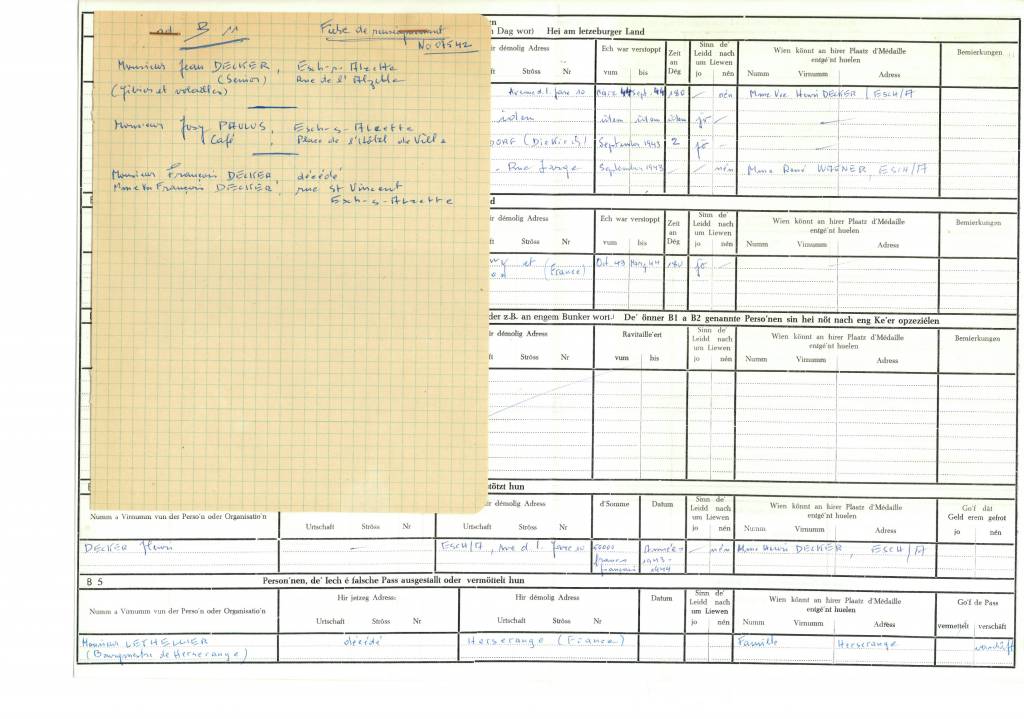 ad B 11 Fiche de renseignement
No 07542
Monsieur Jean DECKER, Esch-s-Alzette
(Senior) Rue de l'Alzette
(Gibiers et volailles)
Monsieur Josy PAULUS, Esch-s-Alzette
Café, Place de l'Hôtel de Ville
Monsieur François DECKER, décédé
Mme Vve François DECKER, rue St Vincent
Esch-s-Alzette
Dag wor) Hei am letzeburger Land
ir démolig Adress Ech war verstoppt Zeit an Dég Sinn de' Leidd nach um Liewen Wien könnt an hirer Plaatz d'Médaille entgé'nt huelen Bemierkungen
ft Ströss Nr vum bis jo nén Numm Virnumm Adress
Avenue d. l. Gare 10 März 44 Sept. 44 180 nén Mme Vve Henri DECKER, ESCH/A
item item item item jö
DORF (Diekirch) September 1943 2 jö
Rue Large September 1943 nén Mme René WAGNER, ESCH/A
d
ir démolig Adress Ech war verstoppt Zeit an Dég Sinn de' Leidd nach um Liewen Wien könnt an hirer Plaatz d'Médaille entgé'nt huelen Bemierkungen
ft Ströss Nr vum bis jo nén Numm Virnumm Adress
et (France) Oct. 43 März 44 180 jö
der z.B. an engem Bunker wor) De' önner B1 a B2 genannte Perso'nen sin hei nöt nach eng Ke'er opzeziélen
ir démolig Adress Ravitaille'ert Sinn de' Leidd nach um Liewen Wien könnt an hirer Plaatz d'Médaille entgé'nt huelen Bemierkungen
ft Ströss Nr vum bis jo nén Numm Virnumm Adress
tötzt hun
Numm a Virnumm vun der Perso'n oder Organisatio'n Urtschaft Ströss Nr démolig Adress Urtschaft Ströss Nr d'Somme Datum Sinn de' Leidd nach um Liewen jo nén Wien könnt an hirer Plaatz d'Médaille entgé'nt huelen Numm Virnumm Adress Go'f dât Geld erem gefrot jo nén
DECKER Henri ESCH/A, Ave d. l. Gare 10 francs français Années 1943-1944 nén Mme Henri DECKER, ESCH/A
B 5 Perso'nen, de' Iech é falsche Pass ausgestallt oder vermöttelt hun
Numm a Virnumm vun der Perso'n oder Organisatio'n Hir jetzeg Adress: Urtschaft Ströss Nr Hir démolig Adress Urtschaft Ströss Nr Datum Sinn de' Leidd nach um Liewen jo nén Wien könnt an hirer Plaatz d'Médaille entgé'nt huelen Numm Virnumm Adress Go'f de Pass vermettelt verschâft
Monsieur LETHELLIER décédé Herserange (France) Famille Herserange verschâft
(Bourgmestre de Herserange)